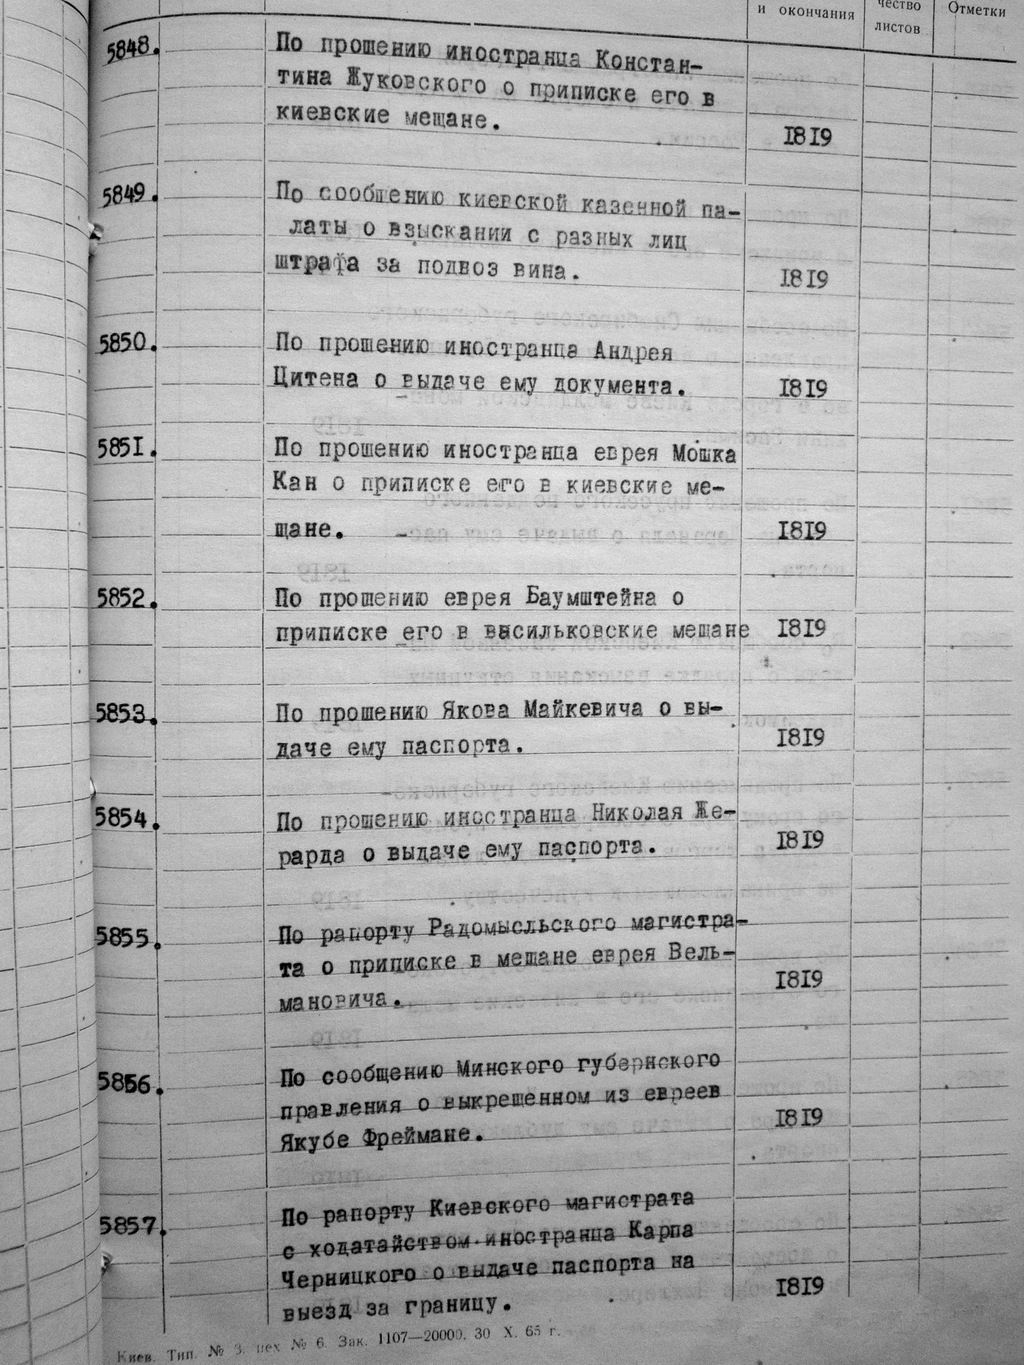 и окончания
чество
листов
Отметки
5848.
По прошению иностранца Констан-
тина Жуковского о приписке его в
киевские мещане.
1819
5849.
По сообщению киевской казенной па-
латы о взыскании с разных лиц
штрафа за подвоз вина.
1819
5850.
По прошению иностранца Андрея
Цитена о выдаче ему документа.
1819
5851.
По прошению иностранца еврея Мошка
Кан о приписке его в киевские ме-
щане.
1819
5852.
По прошению еврея Баумштейна о
приписке его в васильковские мещане
1819
5853.
По прошению Якова Майкевича о вы-
даче ему паспорта.
1819
5854.
По прошению иностранца Николая Же-
рарда о выдаче ему паспорта.
1819
5855.
По рапорту Радомысльского магистра-
та о приписке в мещане еврея Вель-
мановича.
1819
5856.
По сообщению Минского губернского
правления о выкрещенном из евреев
Якубе Фреймане.
1819
5857.
По рапорту Киевского магистрата
с ходатайством иностранца Карпа
Черницкого о выдаче паспорта на
выезд за границу.
1819
Киев. Тип. № 3. цех № 6. Зак. 1107—20000. 30 X. 65 г.